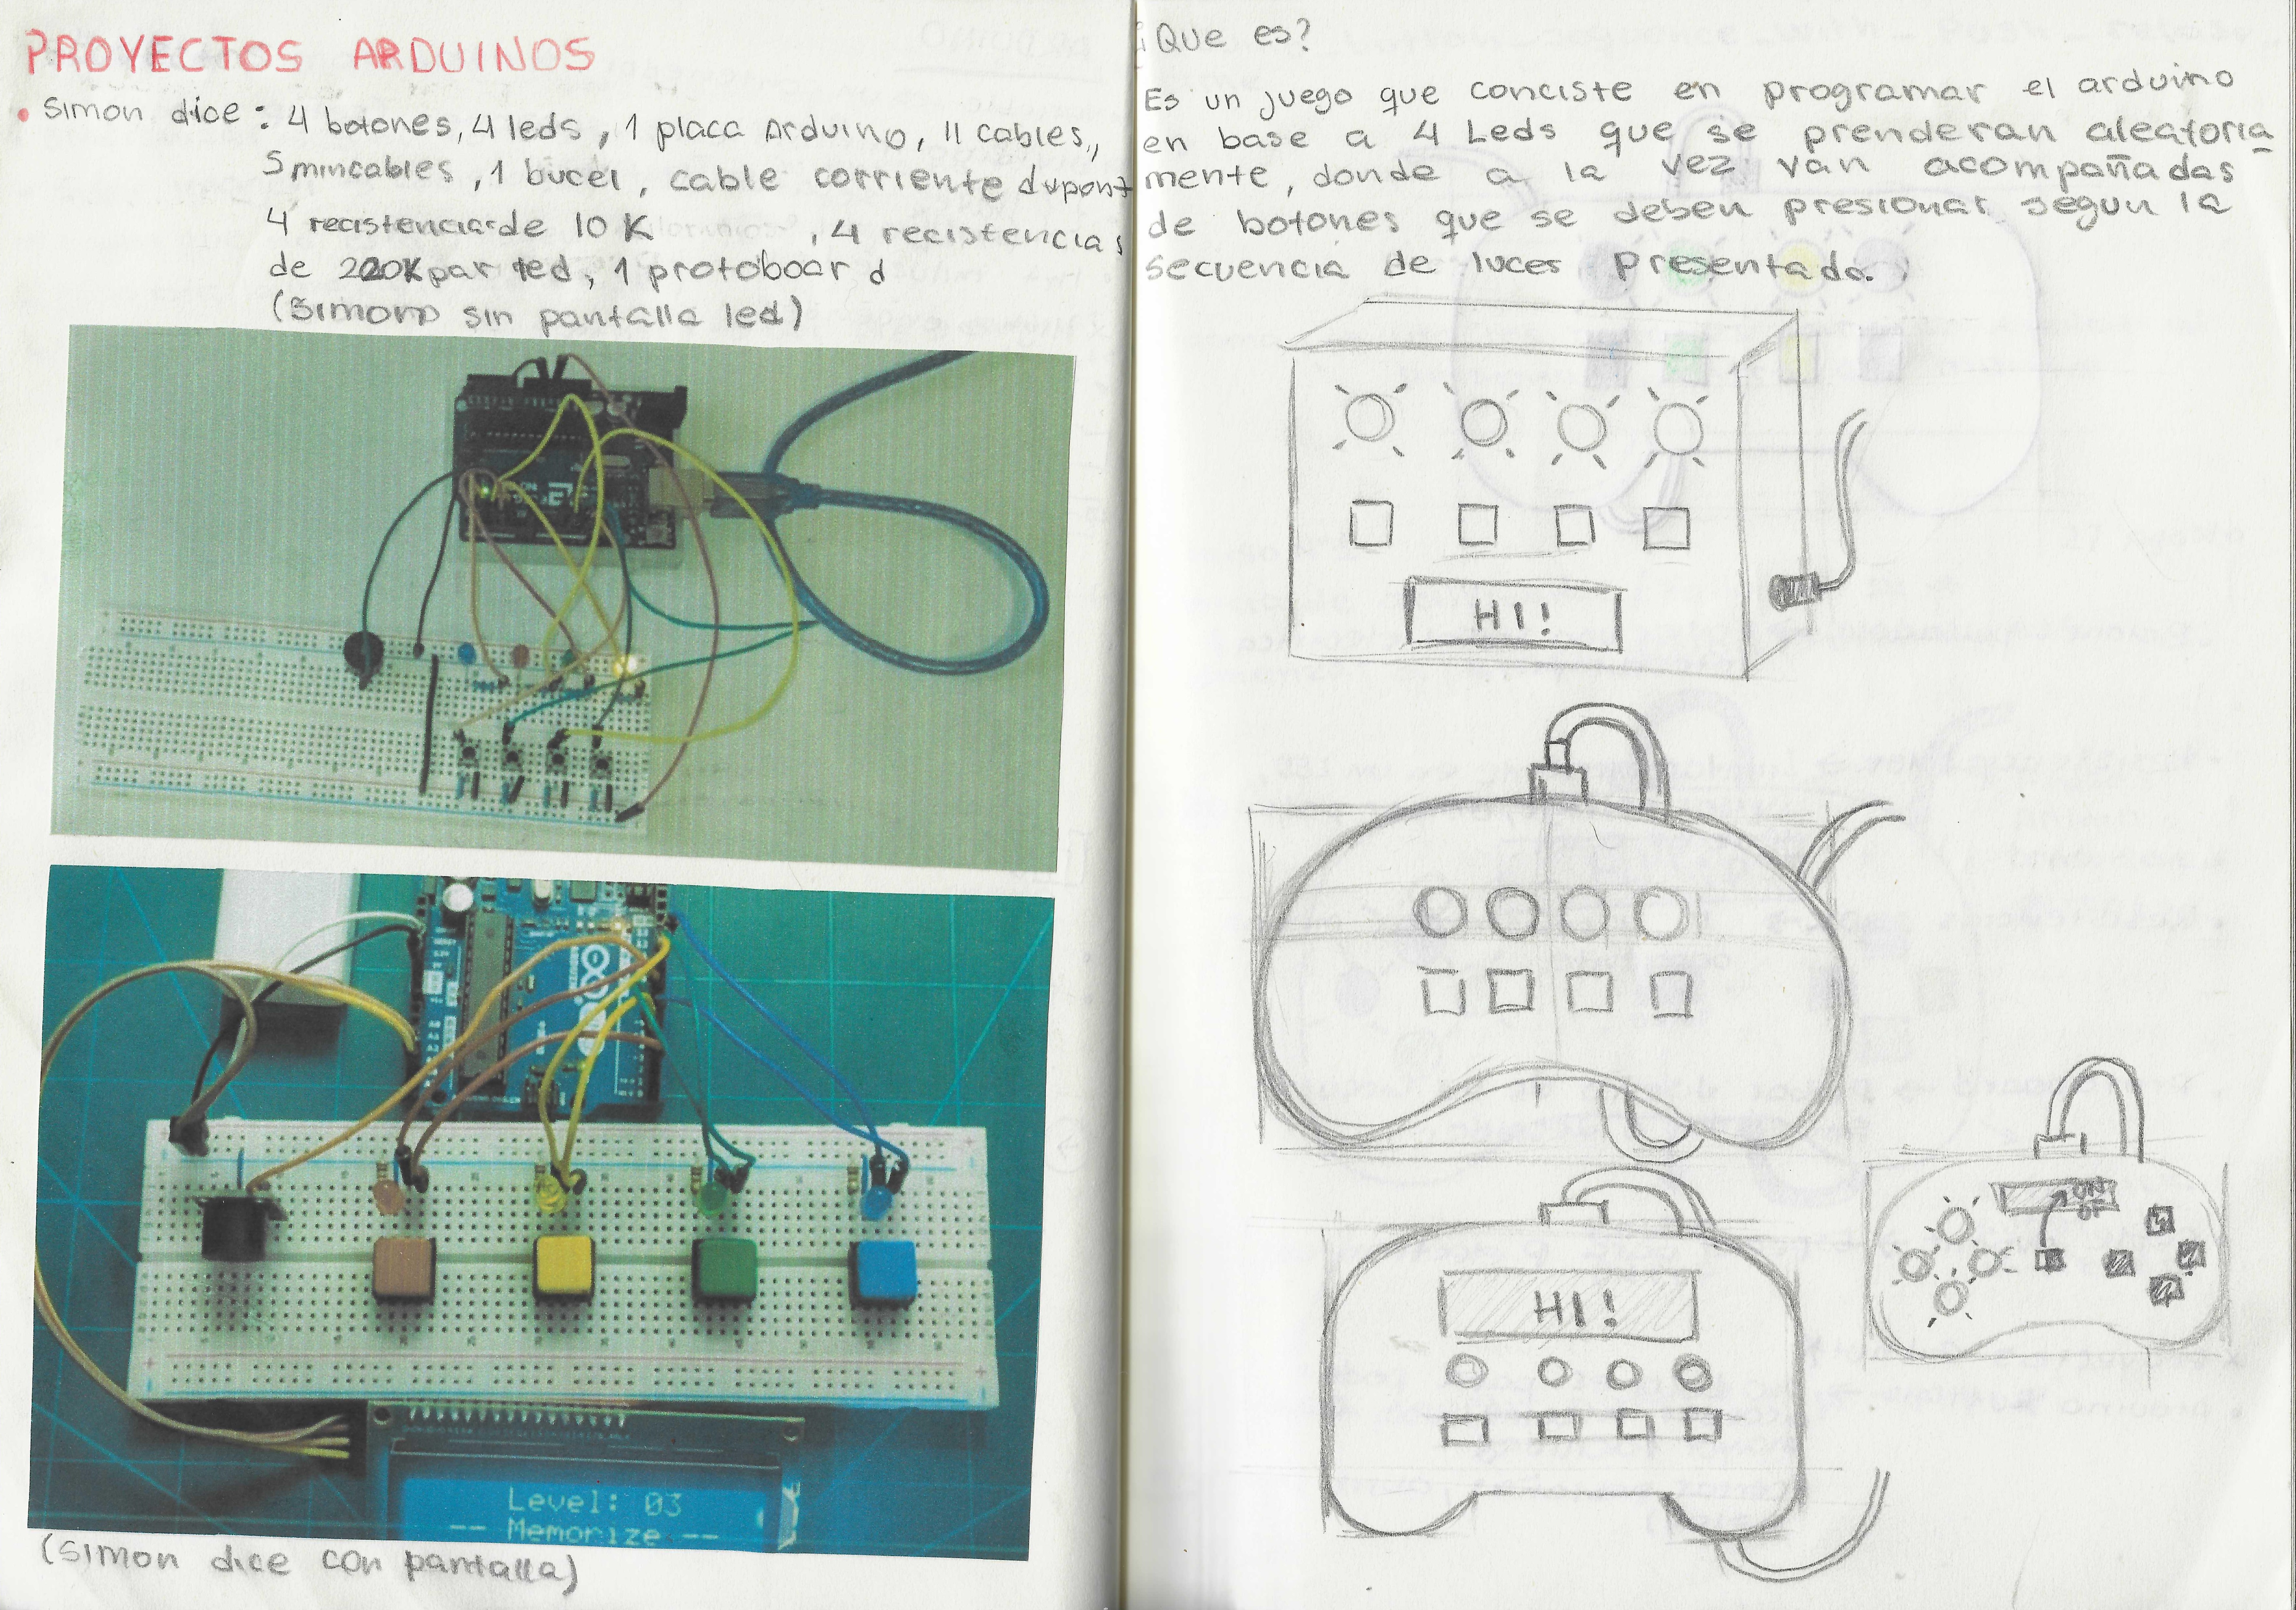 PROYECTOS ARDUINOS
• Simon dice: 4 botones, 4 leds, 1 placa Arduino, 11 cables,,
5 mincables, 1 bucer, cable corriente dupont
4 recistencias de 10 K , 4 recistencias
de 220K par led, 1 protoboar d
(Simon sin pantalla led)
Level: 03
-- Memorize --
(Simon dice con pantalla)
¿Que es?
Es un juego que conciste en programar el arduino
en base a 4 Leds que se prenderan aleatoria
mente, donde a la vez van acompañadas
de botones que se deben presionar segun la
secuencia de luces presentado.
HI!
HI!